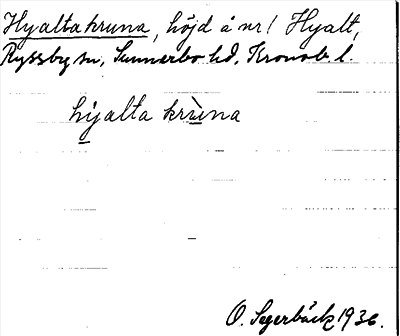 Hyaltakruna, höjd å nr 1 Hyalt,
Ryssby sn, Sunnerbo hd, Kronob. l.
hyalta krùna
O. Segerbäck 1936.